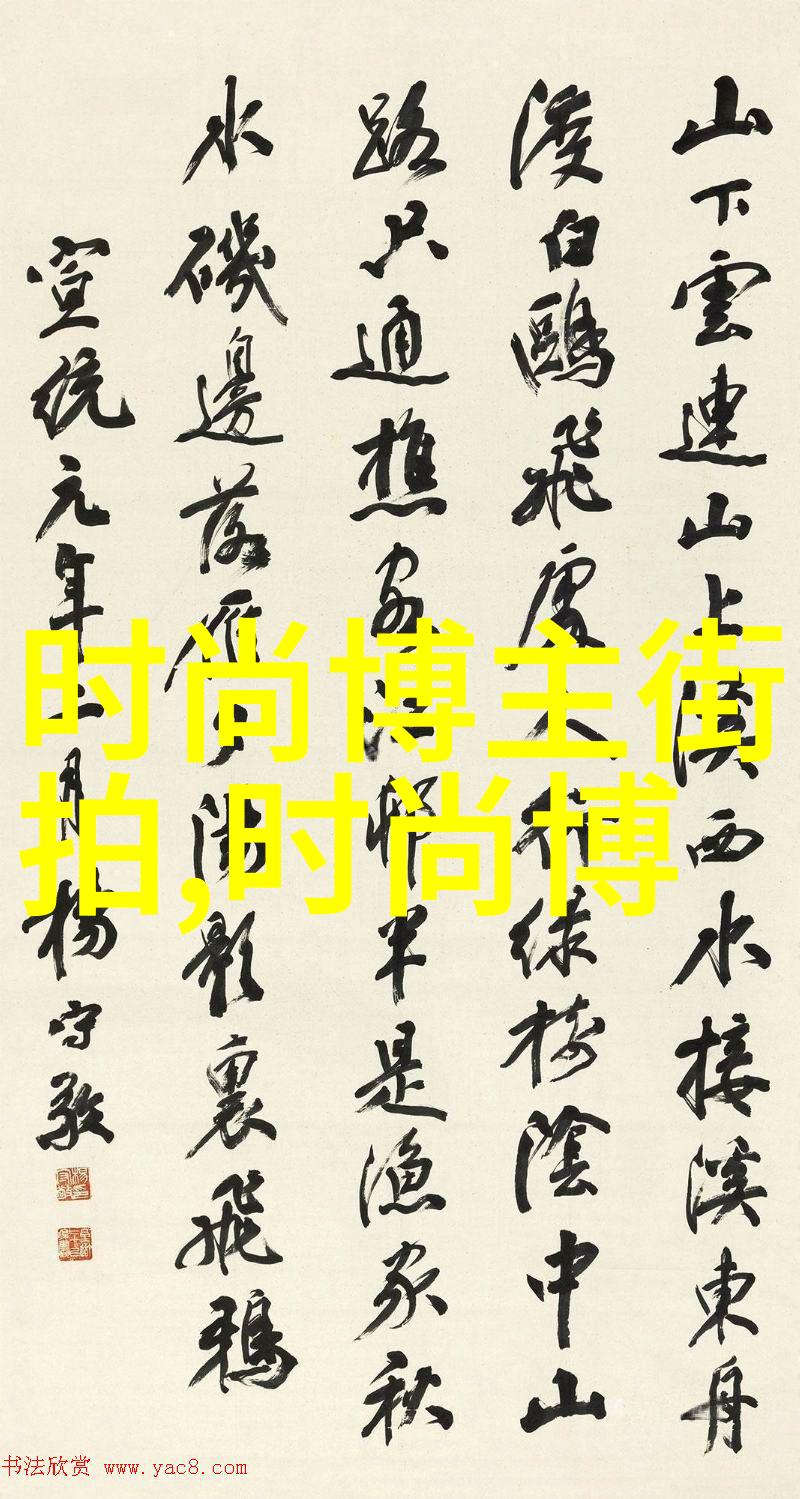 山下雲連山上溪西水接溪東舟
渡白鷗飛處人行綠樹陰中山
路只通樵客江邨半是漁家秋
水磯邊落雁夕陽影裏飛鴉
宣統元年二月楊守敬
时尚博主街
拍,时尚博
书法欣赏 www.yac8.com